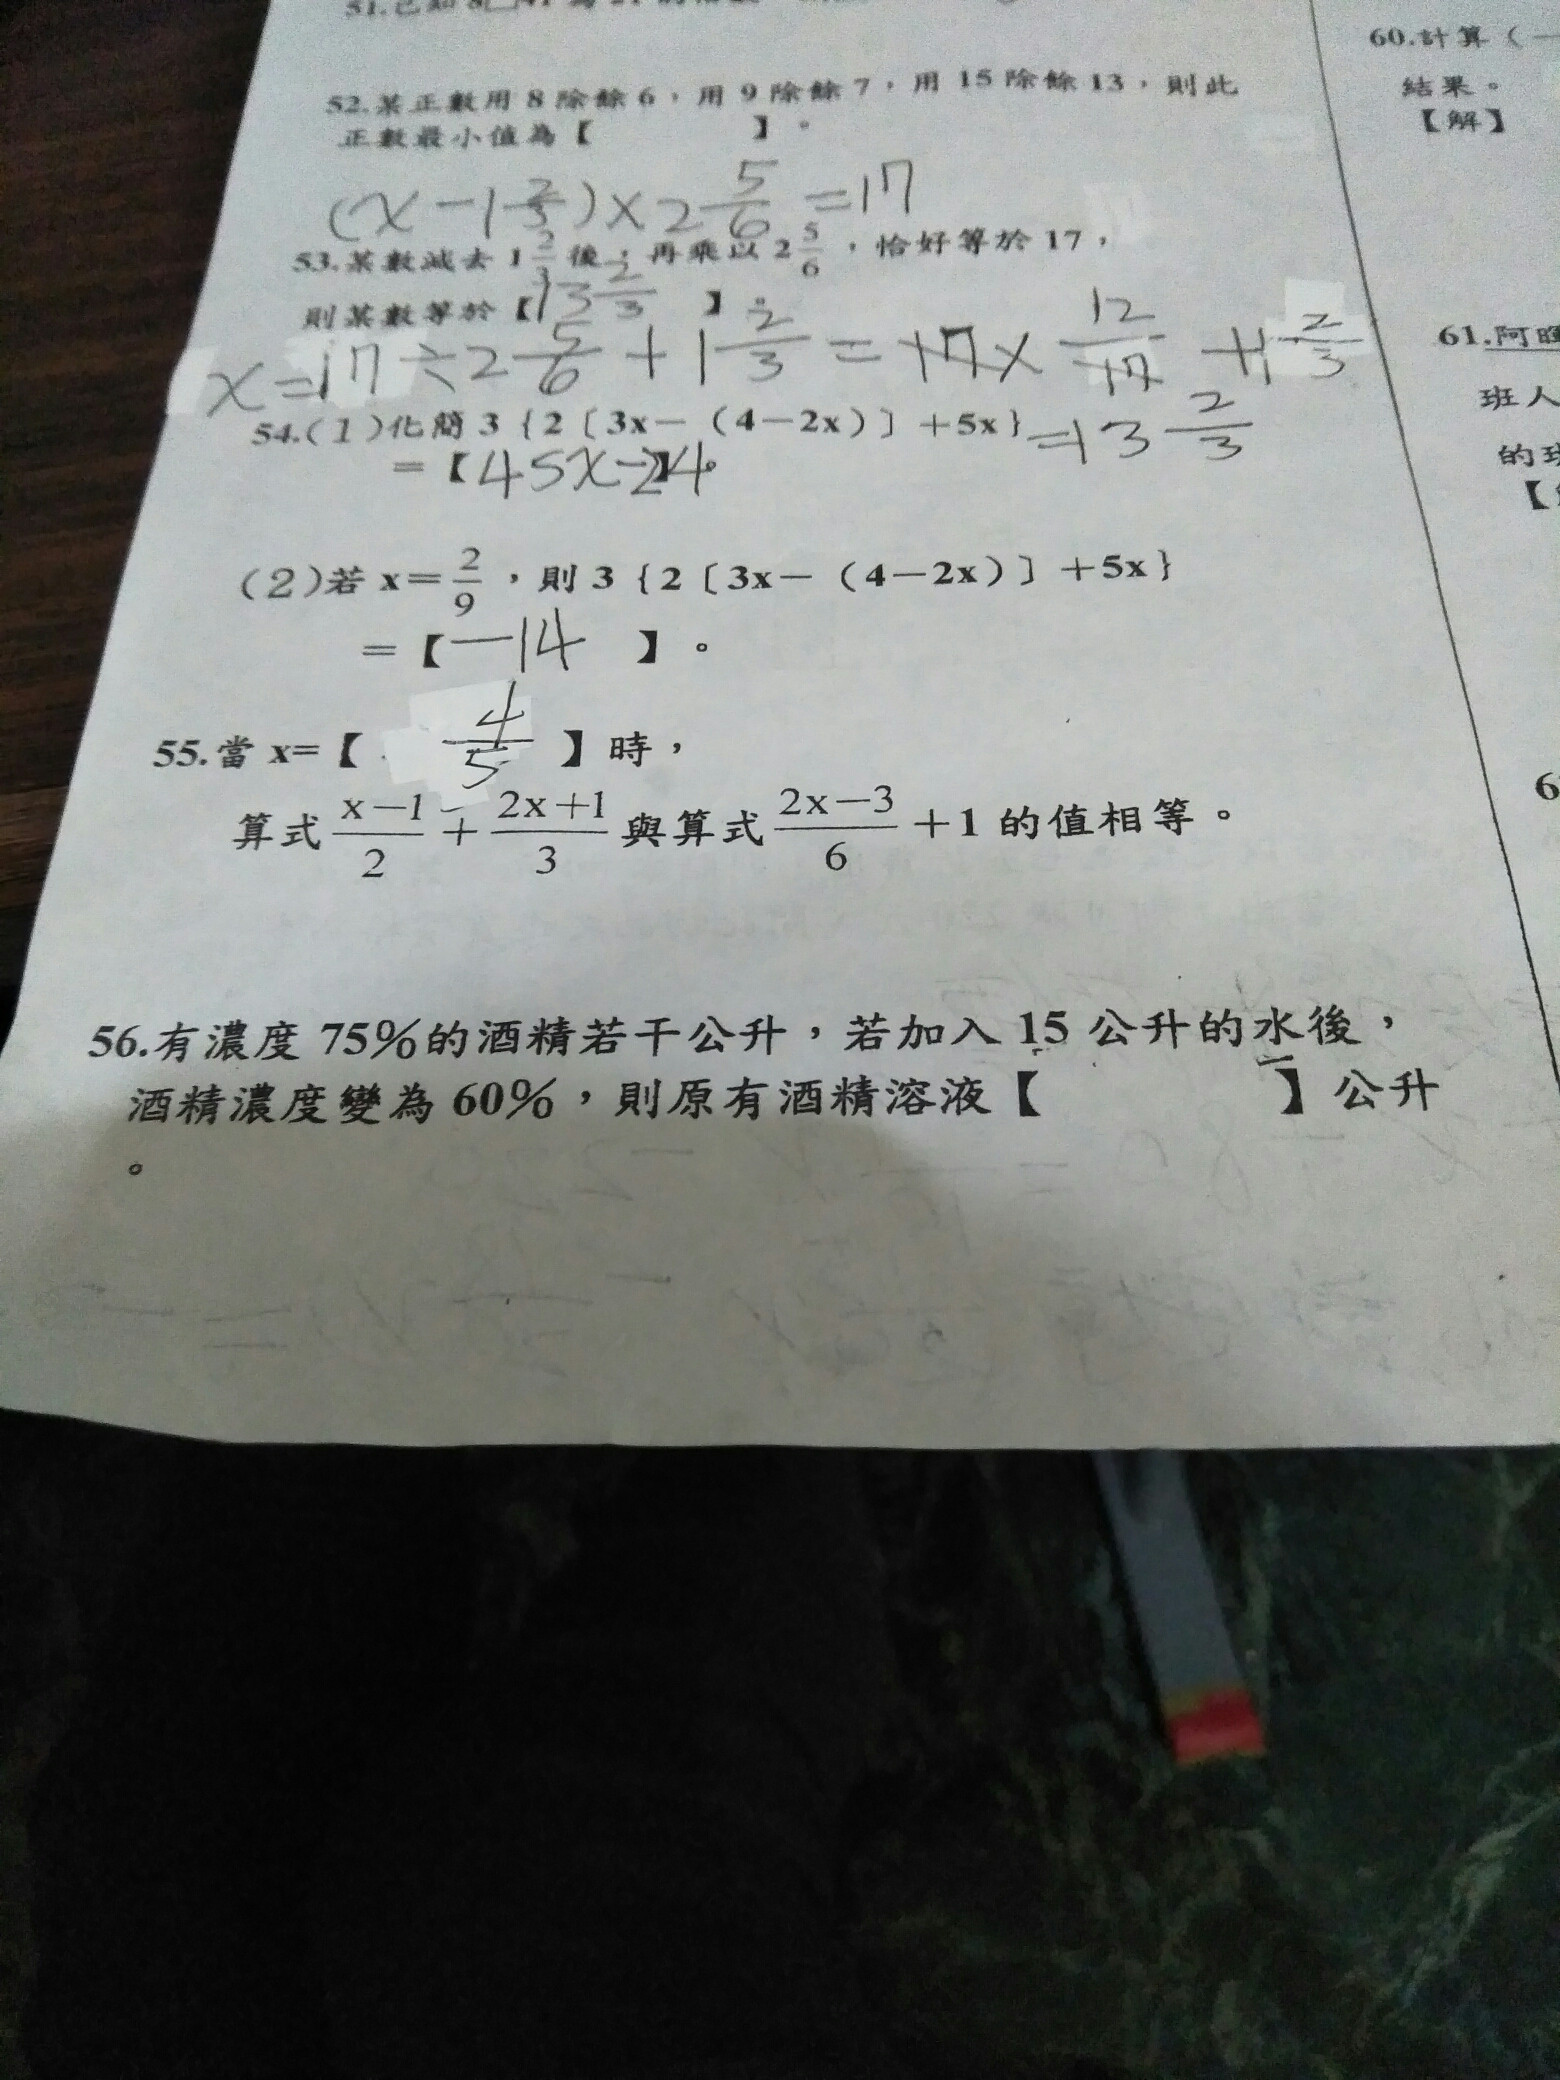 52.某正數用 8 除餘 6,用 9 除餘 7,用 15 除餘 13,則此
正數最小值為【 】。
(x-1 2/3)×2 5/6=17
53.某數減去 1 2/3 後,再乘以 2 5/6,恰好等於 17,
則某數等於【13 2/3】。
x=17÷2 5/6+1 2/3=17×12/17+1 2/3
=13 2/3
54.(1)化簡 3{2〔3x-(4-2x)〕+5x}
=【45x-24】。
(2)若 x=2/9,則 3{2〔3x-(4-2x)〕+5x}
=【-14】。
55.當 x=【4/5】時,
算式 x-1/2+2x+1/3 與算式 2x-3/6+1 的值相等。
56.有濃度 75%的酒精若干公升,若加入 15 公升的水後,
酒精濃度變為 60%,則原有酒精溶液【 】公升
。
60.計算(-
結果。
【解】
61.阿
班人
的班
【
6